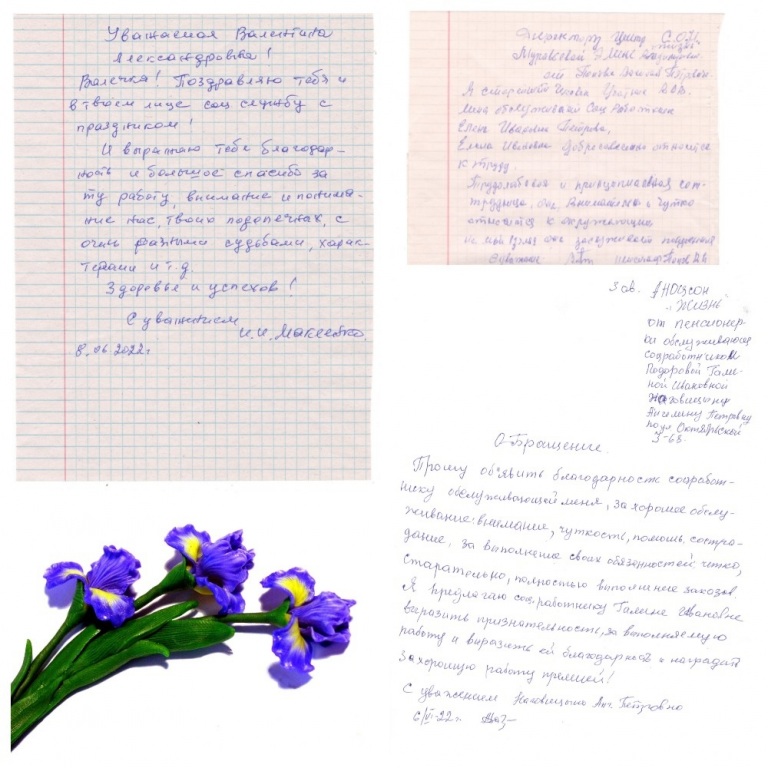 Уважаемая Валентина
Александровна!
Валечка! Поздравляю тебя и
в твоем лице соц службу с
праздником!
И выражаю тебе благодар-
ность и большое спасибо за
ту работу, внимание и понима-
ние нас, твоих подопечных, с
очень разными судьбами, харак-
терами и т.д.
Здоровье и успехов!
С уважением
И.И. Макеенко.
8.06.2022г
Директору Центр С.О.Н.
"Жизнь"
от
Я
Меня обслуживает Соц Работник
Елена Ивановна Петрова,
Елена Ивановна добросовестно относится
к труду.
Трудолюбивая и принципиальная сот-
рудница, она внимательно и чутко
относится к окружающим
на мой взгляд она заслуживает
С уважение
Зав. АНО ЦСОН
"ЖИЗНЬ
от пенсионер
ки обслуживающей
соцработником
Подоровой Гали-
ной Ивановной
Ангелину Петровну
по ул Октябрьской
Обращение.
Прошу объявить благодарность соцработ-
нику обслуживающей меня, за хорошее обслу-
живание: внимание, чуткость, помощь, состра-
дание, за выполнение своих обязанностей, четко,
старательно, полностью выполние заказов.
Я предлагаю соц.работнику Галине Ивановне
выразить признательность, за выполняемую
работу и выразить ей благодарность и наградить
за хорошую работу премией!
С уважением Анг Петровна
6/VI-22г.